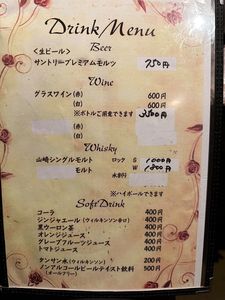 Drink Menu
Beer
<生ビール>
サントリープレミアムモルツ 750円
Wine
グラスワイン (赤) 600円
(白) 600円
※ボトルご用意できます 3500円
(赤)
(白)
Whisky
山崎シングルモルト ロック S 1000円
モルト W 1800円
水割り
※ハイボールできます
Soft Drink
コーラ 400円
ジンジャエール (ウィルキンソン辛口) 400円
黒ウーロン茶 400円
オレンジジュース 400円
グレープフルーツジュース 400円
トマトジュース 400円
タンサン水 (ウィルキンソン) 200円
ノンアルコールビールテイスト飲料 500円
(オールフリー)